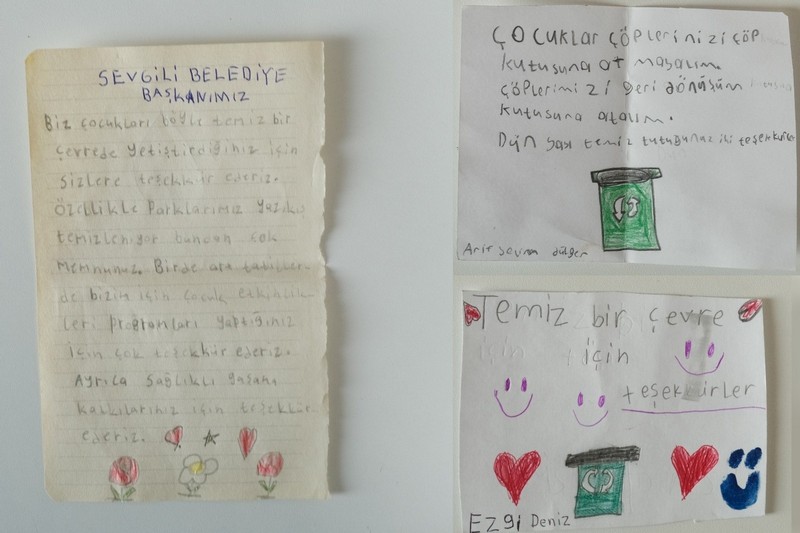 SEVGİLİ BELEDİYE
BAŞKANIMIZ
Biz çocukları böyle temiz bir
çevrede yetiştirdiğiniz için
sizlere teşekkür ederiz.
Özellikle Parklarımız
temizleniyor bundan çok
memnunuz. Birde ara tatiller-
de bizim için çocuk etkinlik-
leri programları yaptığınız
için çok teşekkür ederiz.
Ayrıca sağlıklı yaşama
katkılarınız için teşekkür
ederiz.
ÇOCUKLAR ÇÖPlerinizi çöp
kutusuna at mayalım.
çöplerimizi geri dönüşüm
kutusuna atalım.
temiz
Arif
Temiz bir çevre
için
teşekkürler
EZgi Deniz